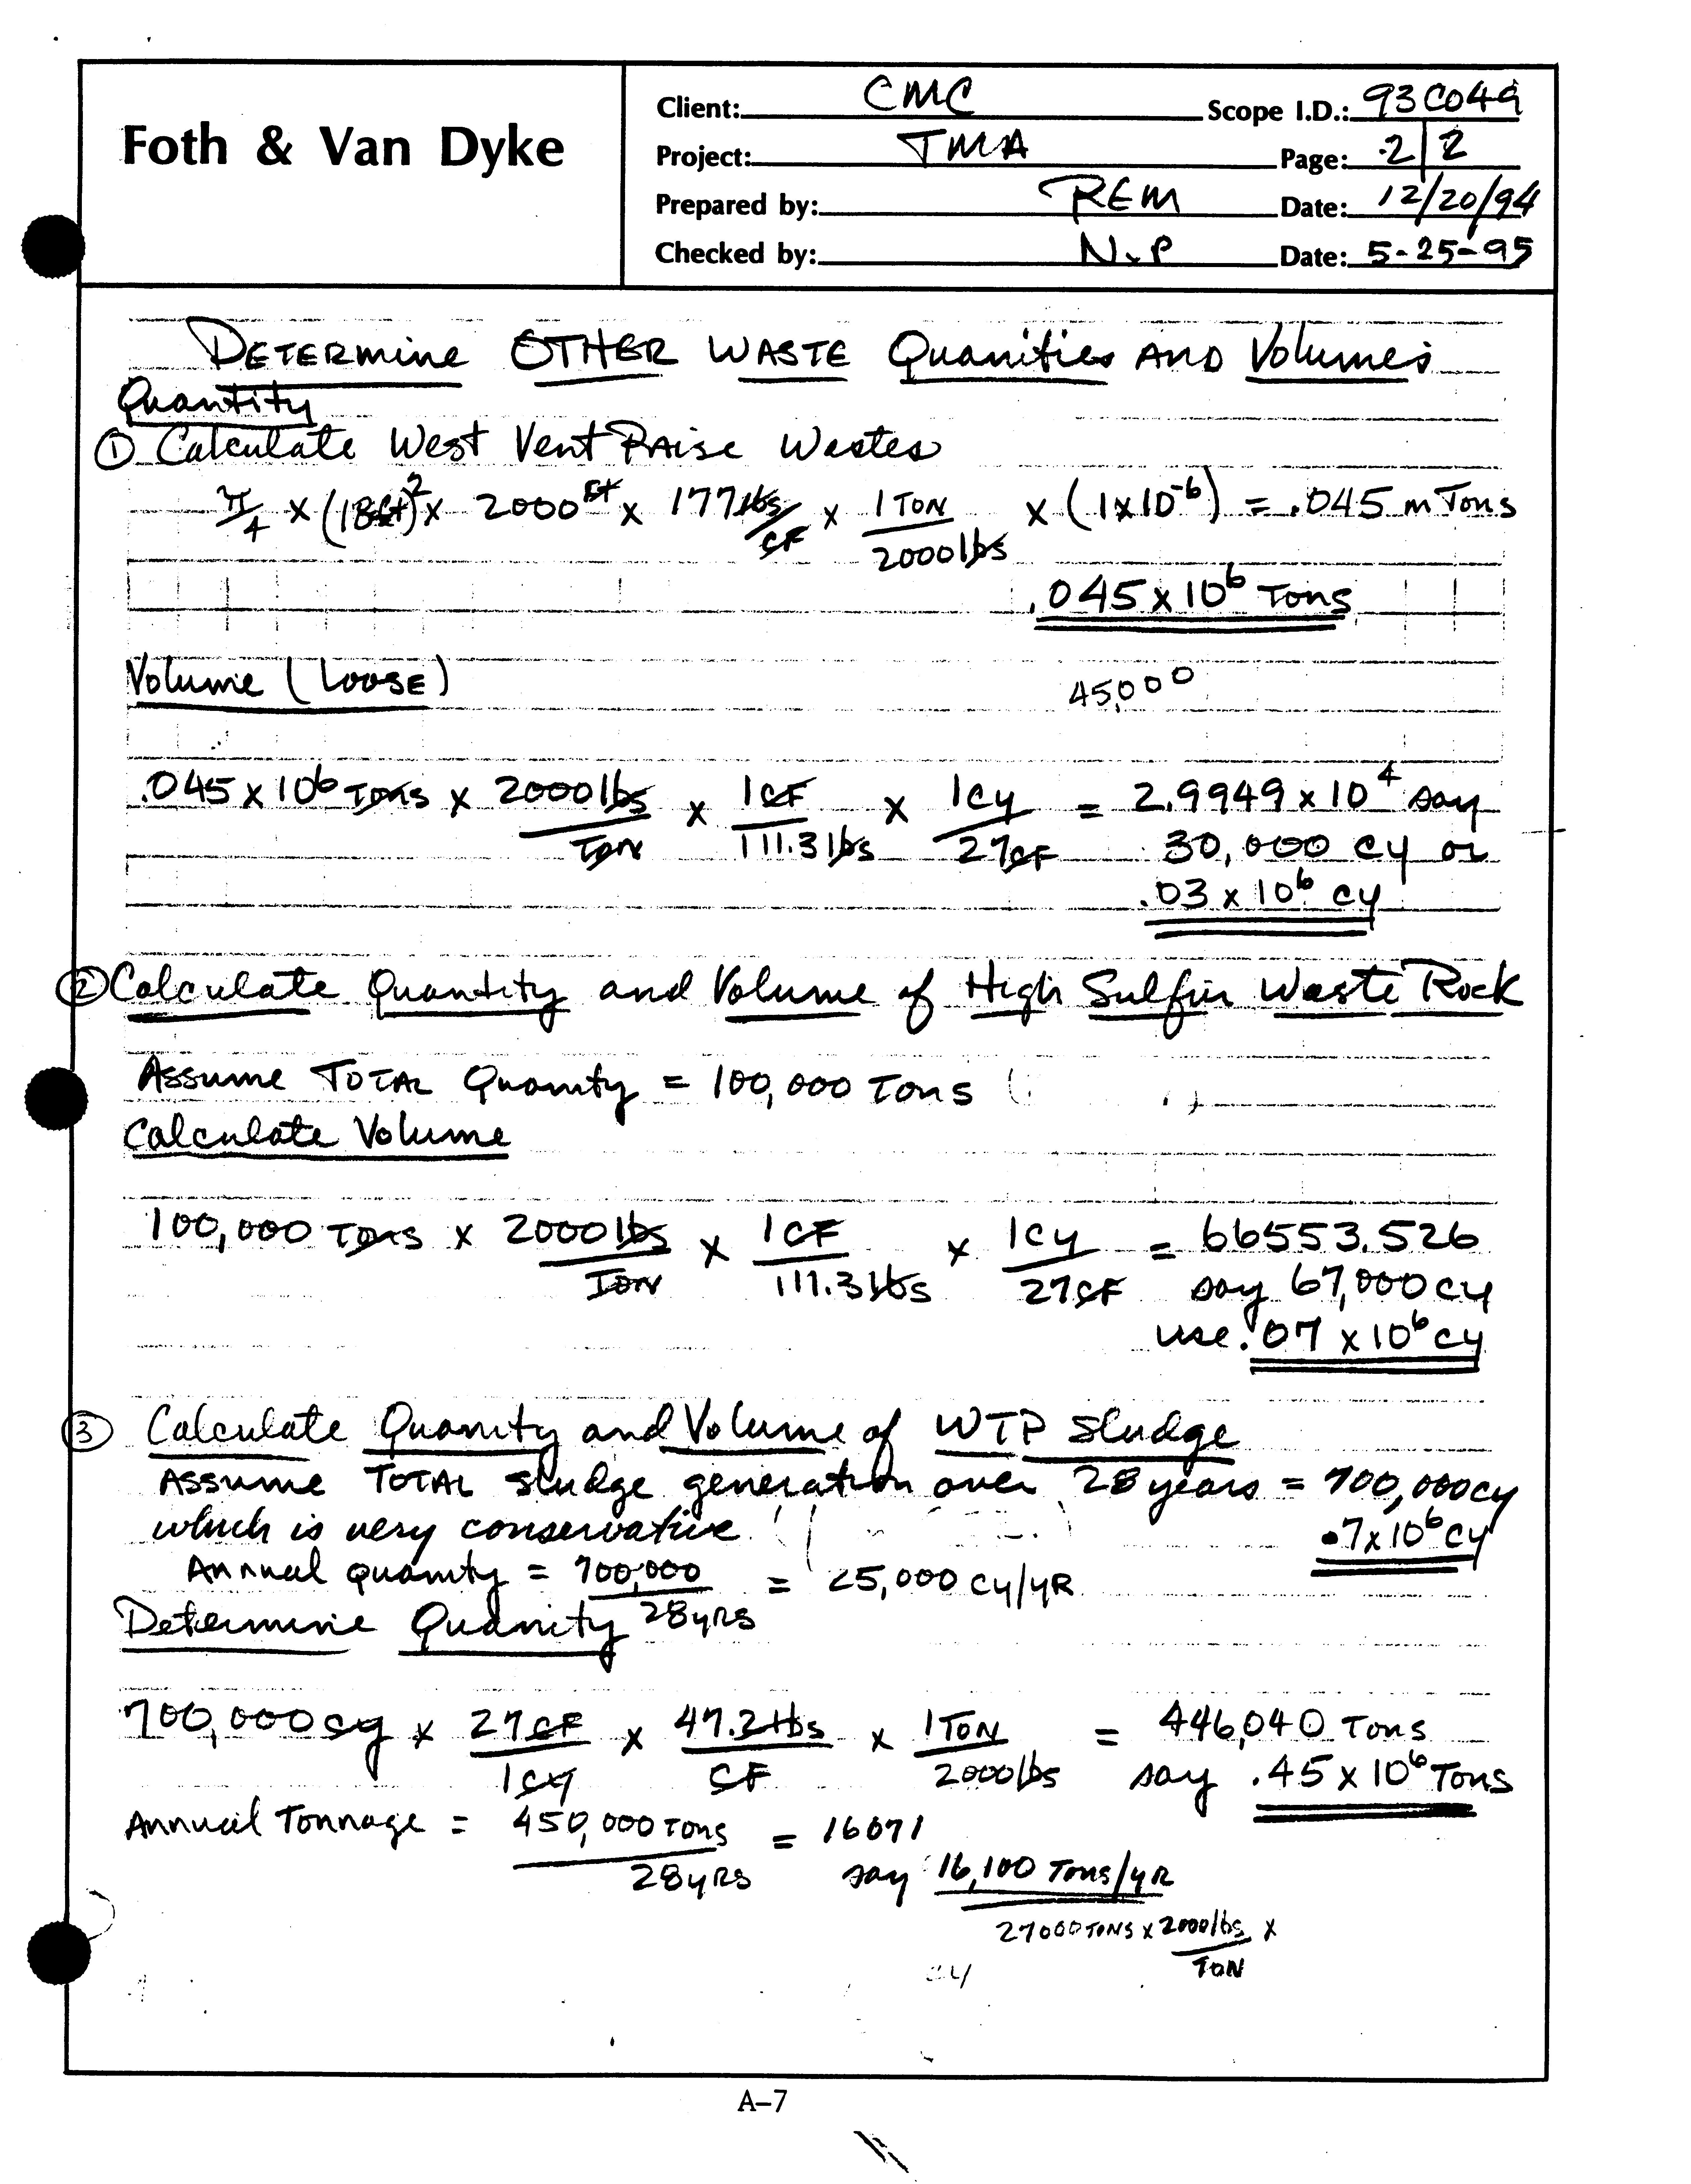 Foth & Van Dyke
Client: CMC Scope I.D.: 93C049
Project: TMA Page: 2/2
Prepared by: REM Date: 12/20/94
Checked by: N.P Date: 5-25-95
DETERmine OTHER WASTE Quanities AND Volumes
Quantity
① Calculate West Vent RAise Wastes
π/4 x (18ft)² x 2000 ft x 177 lbs/CF x 1 TON/2000 lbs x (1x10⁻⁶) = .045 m Tons
.045 x 10⁶ Tons
Volume (Loose)
45,000
.045 x 10⁶ Tons x 2000 lbs/Ton x 1 CF/111.3 lbs x 1 Cy/27 CF = 2.9949 x 10⁴ say
30,000 CY or
.03 x 10⁶ CY
② Calculate Quantity and Volume of High Sulfur Waste Rock
Assume TOTAL Quantity = 100,000 Tons
Calculate Volume
100,000 Tons x 2000 lbs/Ton x 1 CF/111.3 lbs x 1 Cy/27 CF = 66553.526
say 67,000 CY
use .07 x 10⁶ CY
③ Calculate Quanity and Volume of WTP Sludge
Assume TOTAL sludge generation over 28 years = 700,000 CY
which is very conservative
.7 x 10⁶ CY
Annual quantity = 700,000/28 yRs = 25,000 CY/yR
Determine Quanity
700,000 cy x 27 CF/1 cy x 47.2 lbs/CF x 1 TON/2000 lbs = 446,040 Tons
say .45 x 10⁶ Tons
Annual Tonnage = 450,000 Tons/28 yRs = 16071
say 16,100 Tons/yR
27000 TONS x 2000 lbs/TON x
A-7